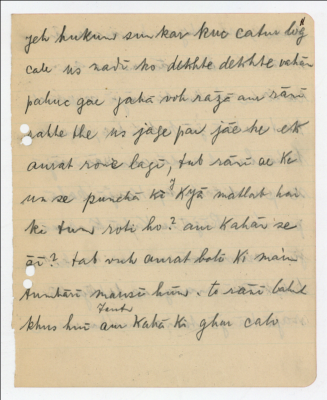 yeh hukum sun kar kuc catur lōg
cale us nadī ko dekhte dekhte vahān
pahuc gae jahā voh rājā aur rānī
rahte the us jage par jāe ke ek
aurat rone lagī, tab rānī ae ke
us se punchā kī kyā matlab hai
ki tum roti ho? aur kahān se
āī? tab vuh aurat boli ki main
tumhārī mausī hūn. to rānī bahut
khus huī aur kahā ki ghar calo